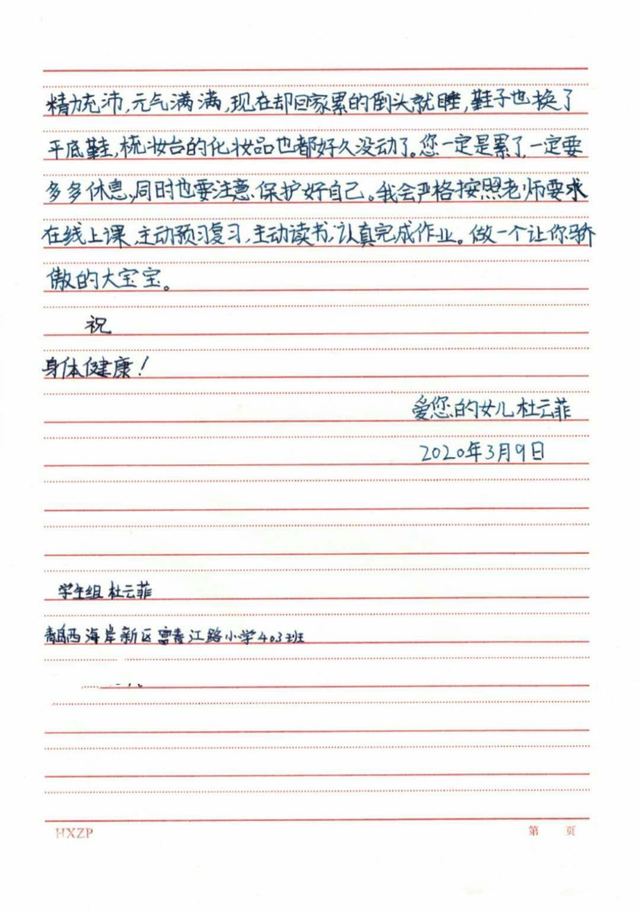 精力充沛,元气满满,现在却回家累的倒头就睡,鞋子也换了
平底鞋,梳妆台的化妆品也都好久没动了。您一定是累了,一定要
多多休息,同时也要注意保护好自己。我会严格按照老师要求
在线上课,主动预习复习,主动读书,认真完成作业。做一个让你骄
傲的大宝宝。
祝
身体健康!
爱您的女儿杜云菲
2020年3月9日
学生组 杜云菲
青岛西海岸新区富春江路小学403班
HXZP
第 页